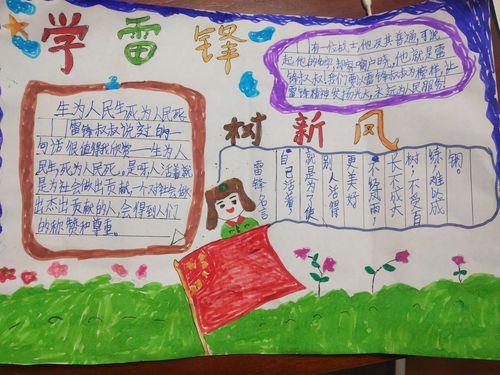 学雷锋
有一位战士他及其普通,可说
起他的名字却家喻户晓,他就是雷
锋叔叔!我们要以雷锋叔叔为榜样,让
雷锋精神发扬光大,永远为人民服务
树新风
生为人民生死为人民死
雷锋叔叔说过的一
句话很值得我欣赏——生为人
民生死为人民死。是呀人活着就
是为社会做出贡献,一个对社会做
出杰出贡献的人,会得到人们
的称赞和尊重。
雷锋名言
自己活着,
就是为了使
别人活得
更美好
不经风雨,
长不成大
树;不受百
炼,难以成
钢。